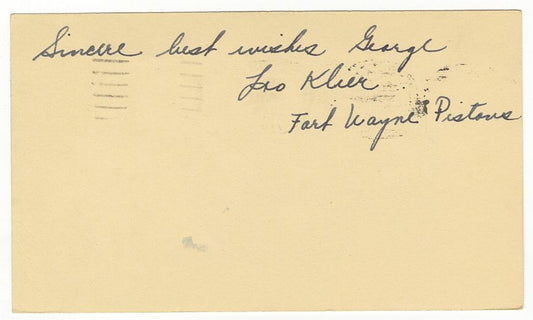 Sincere best wishes George
Leo Klier
Fort Wayne Pistons